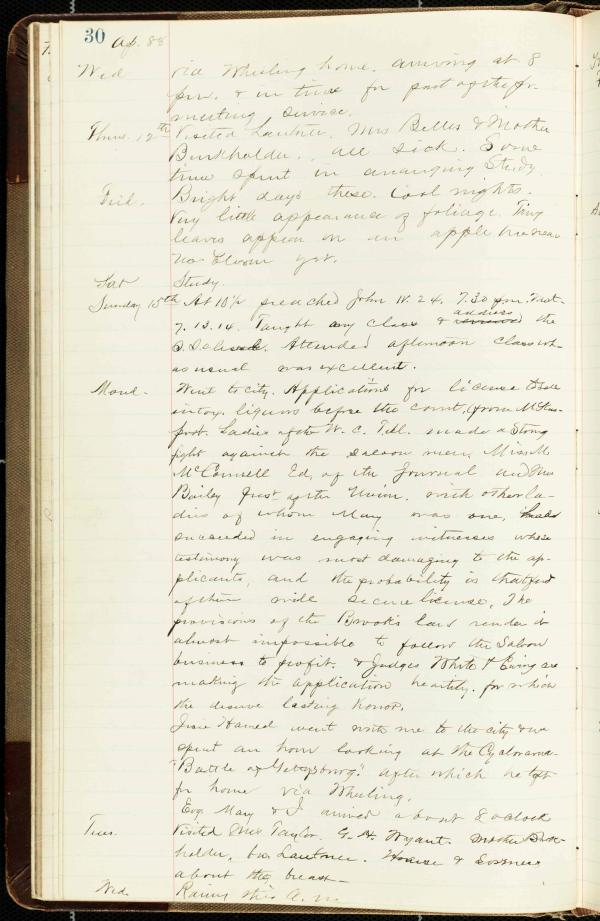 30 Ap. 88
Wed via Wheeling home. arriving at 8
p.m. & in time for part of the pr.
meeting service.
Thurs. 12th Visited Lautner, Mrs Belles & Mother
Burkholder, all sick. Some
time spent in arranging Study.
Frid. Bright days these. Cool nights.
Very little appearance of foliage. Tiny
leaves appear on an apple tree near
no bloom yet.
Sat Study.
Sunday 15th At 10½ preached John 4. 24. 7.30 p.m. Matt.
7. 13.14. Taught my class & address the
S. School. Attended afternoon class wh.
as usual was excellent.
Mond. Went to city. Applications for license to sell
intox. liquors before the court, (from McKees-
port. Ladies of the W. C. T. U. made a strong
fight against the saloon men, Miss M.
McConnell Ed, of the Journal and Mrs
Bailey Prest of the Union. with other la-
dies of whom May was one,
succeeded in engaging witnesses whose
testimony was most damaging to the ap-
plicants, and the probability is that few
of them will secure license. The
provisions of the Brooks law render it
almost impossible to follow the Saloon
business to profit. & Judges White & Ewing are
making the application heartily. for which
the deserve lasting honor.
Hamed went with me to the city & we
spent an hour looking at the Cyclorama
"Battle of Gettysburg." after which he left
for home via Wheeling.
Evg May & I arrived about 8 oclock
Tues. Visited Mrs Taylor. G. H. Wyant. Mother Burk-
holder, Lautner. Hoarse & soreness
about the breast.
Wed. Rainy this a.m.